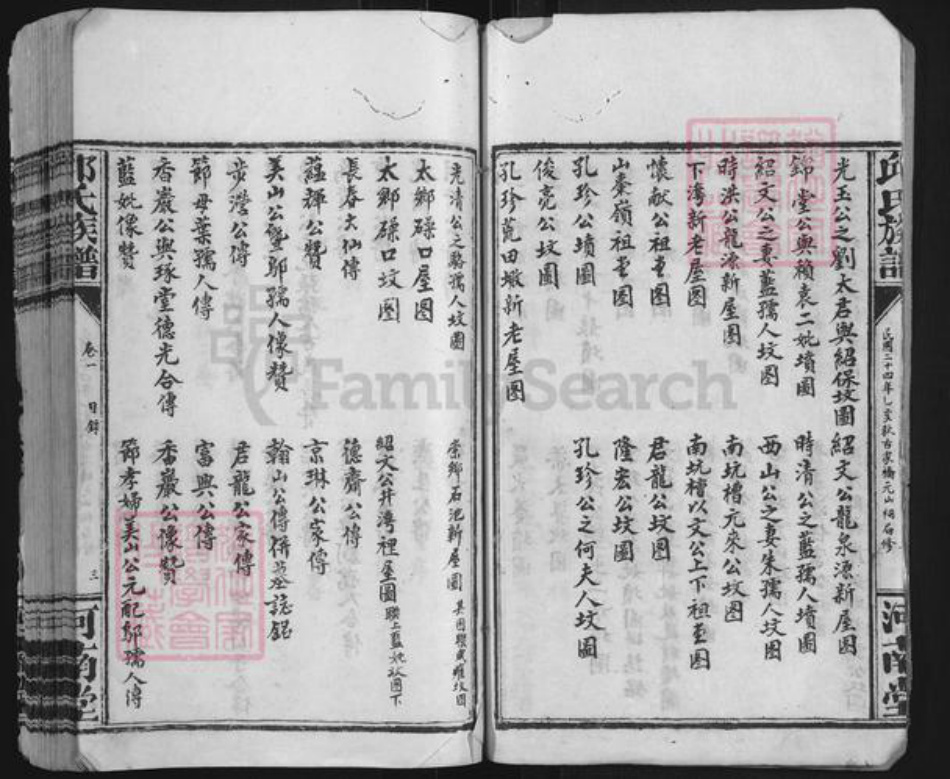 邱氏族譜
民國二十四年乙亥秋古家橋元山祠名修
河南堂
光玉公之劉太君與紹保坟圖 紹文公龍泉源新屋圖
錦堂公與賴袁二妣墳圖 時清公之藍孺人墳圖
紹文公之妻藍孺人坟圖 西山公之妻朱孺人坟圖
時洪公龍源新屋圖 南坑槽元來公坟圖
下湾新老屋圖 南坑槽以文公上下祖堂圖
懷献公祖堂圖 君龍公坟圖
山秦嶺祖堂圖 隆宏公坟圖
孔珍公墳圖 孔珍公之何夫人坟圖
俊亮公坟圖
孔珍莞田墩新老屋图
光清公之駱孺人坟圖 崇鄉石池新屋圖
太鄉磜口屋图
太鄉磜口坟圖 紹文公井灣裡屋圖 聯上藍妣坟圖下
長春大仙傳 德齋公傳
蘊輝公贊 京琳公家傳
美山公暨鄔孺人像贊 翰山公傳併墓誌銘
步瀅公傳 君龍公家傳
節母葉孺人傳 富興公傳
香巖公與琢堂德光合傳 香巖公像贊
藍妣像贊 節孝婦美山公元配鄔孺人傳
邱氏族譜
卷一
目錄
三
河南堂
FamilySearch